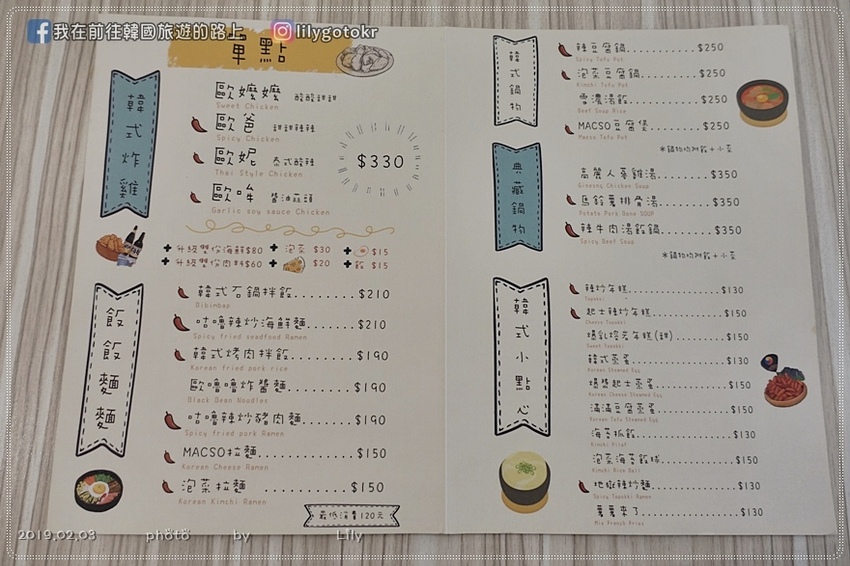 我在前往韓國旅遊的路上
lilygotokr
單點
韓式炸雞
歐嬤嬤 酸酸甜甜
Sweet Chicken
歐爸 甜甜辣辣
Spicy Chicken
歐妮 泰式酸辣
Thai Style Chicken
歐哞 醬油蒜頭
Garlic soy sauce Chicken
$330
+升級雙份海鮮$80 +泡菜 $30 + $15
+升級雙份肉料$60 + $20 +飯 $15
飯飯麵麵
韓式石鍋拌飯........$210
Bibimbap
咕嚕辣炒海鮮麵.......$210
Spicy fried seadfood Ramen
韓式烤肉拌飯........$190
Korean fried pork rice
歐嚕嚕炸醬麵........$190
Black Bean Noodles
咕嚕辣炒豬肉麵.......$190
Spicy fried pork Ramen
MACSO拉麵..........$150
Korean Cheese Ramen
泡菜拉麵 ..........$150
Korean Kimchi Ramen
最低消費120元
韓式鍋物
辣豆腐鍋..........$250
Spicy Tofu Pot
泡菜豆腐鍋.........$250
Kimchi Tofu Pot
雪濃湯飯..........$250
Beef Soup Rice
MACSO豆腐煲........$250
Macso Tofu Pot
*鍋物均附飯+小菜
典藏鍋物
高麗人蔘雞湯........$350
Ginseng Chicken Soup
馬鈴薯排骨湯........$350
Potato Pork Bone SOUP
辣牛肉湯飯鍋........$350
Spicy Beef Soup
*鍋物均附飯+小菜
韓式小點心
辣炒年糕..............$130
Topokki
起士辣炒年糕............$150
Cheese Topokki
爆乳控若年糕(甜)..........$150
Sweet Topokki
韓式蒸蛋..............$130
Korean Steamed Egg
爆漿起士蒸蛋............$150
Korean Cheese Steamed Egg
滿滿豆腐蒸蛋............$150
Korean Tofu Steamed Egg
海苔抓飯..............$130
Kimchi Pilaf
泡菜海苔飯球............$150
Kimchi Rice Ball
地獄辣炒麵.............$130
Spicy Topokki Ramen
薯薯來了..............$130
Mix French Fries
2019.02.03 photo by Lily